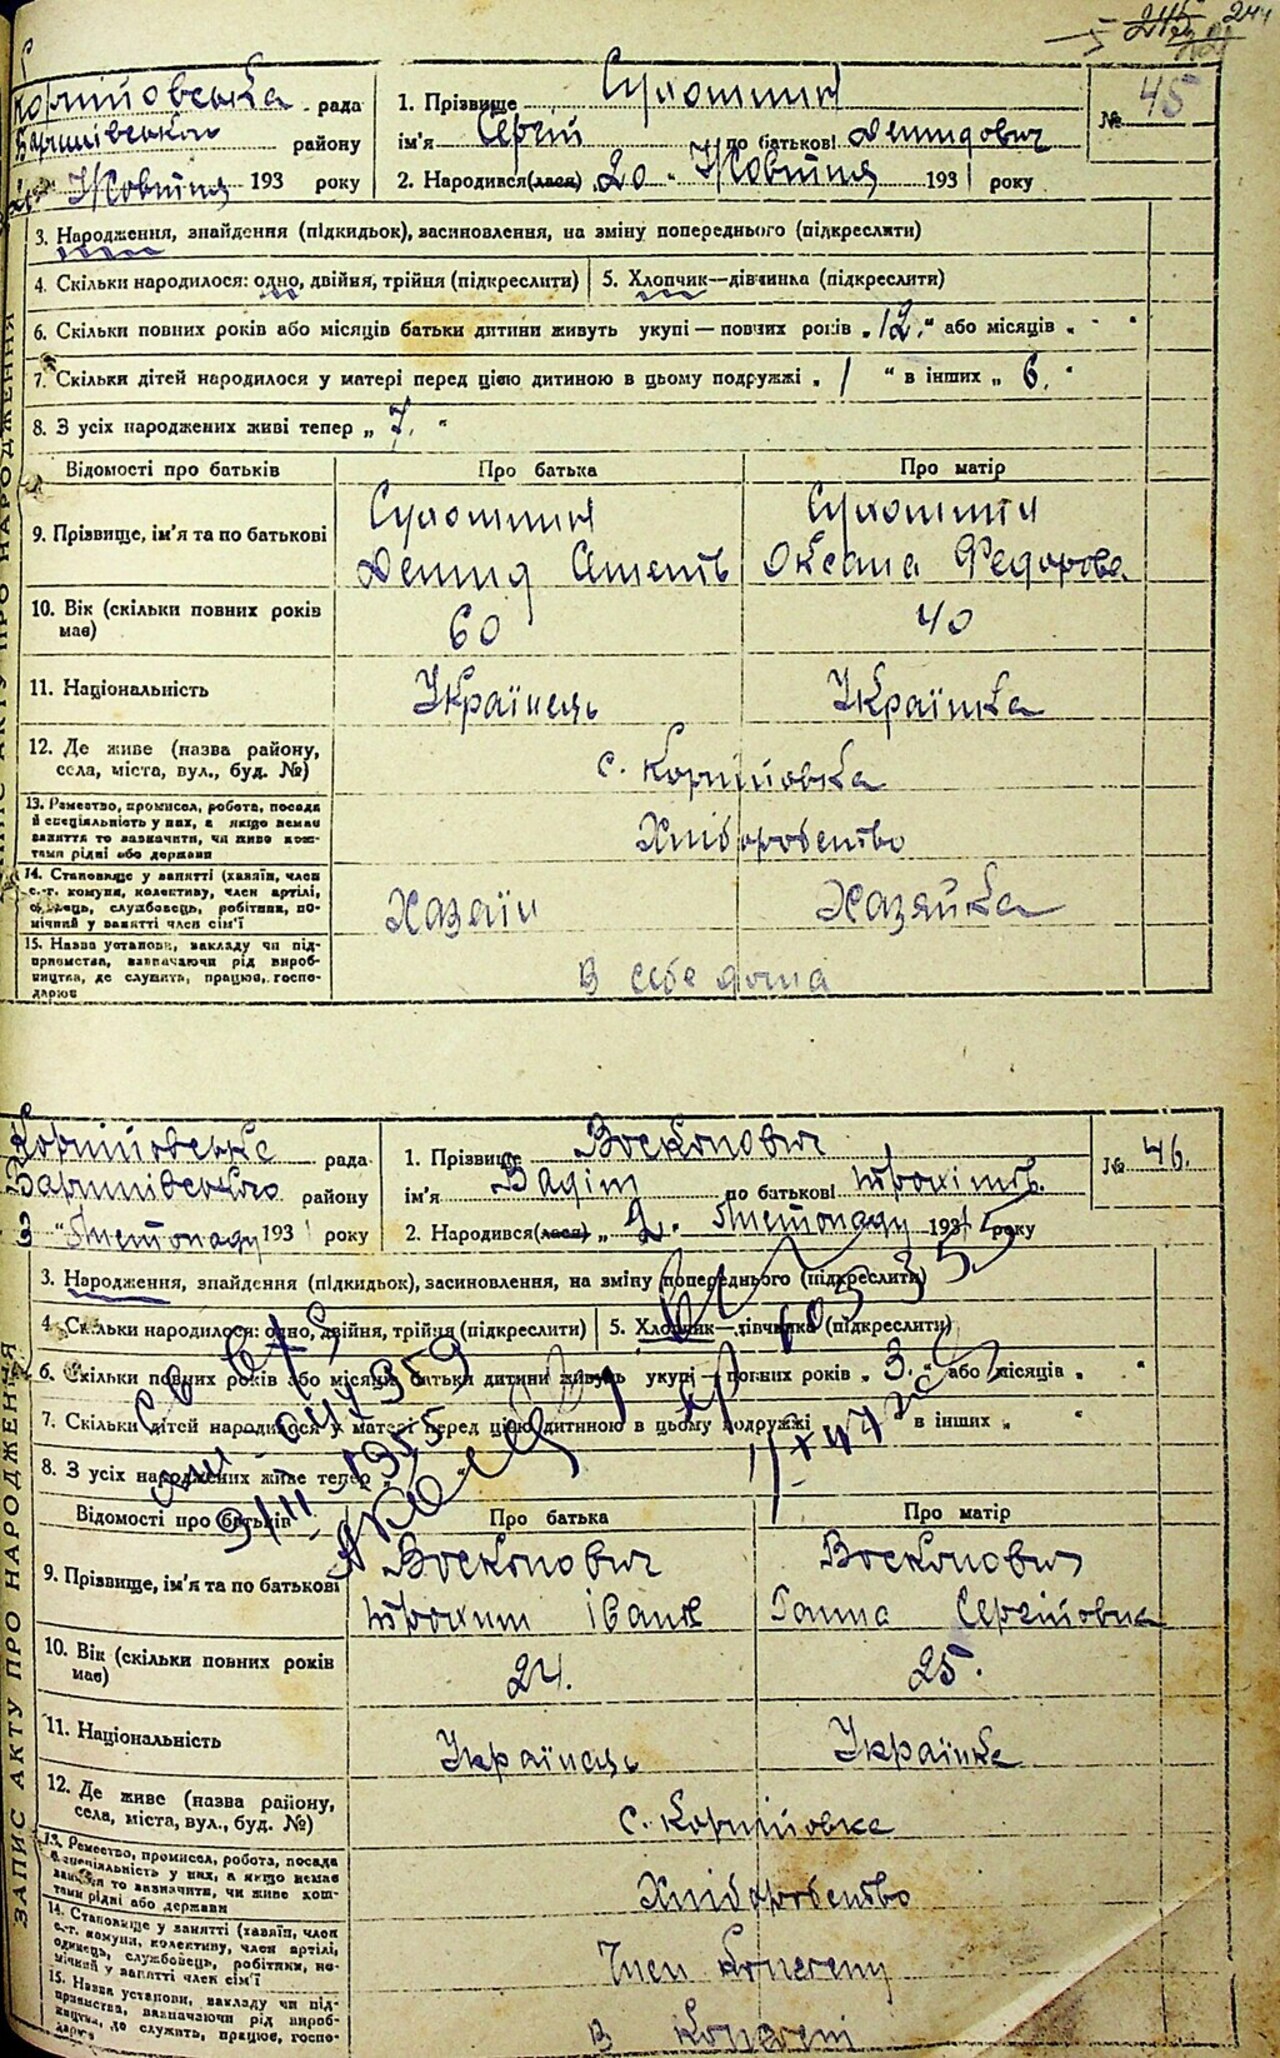 244
Корніївська рада
Баришівського району
Жовтня 193 року
1. Прізвище Сулошнин
ім'я Сергій по батькові Демидович
2. Народився(лася) „20 Жовтня 1931 року
№ 45
3. Народження, знайдення (підкидьок), засиновлення, на зміну попереднього (підкреслити)
4. Скільки народилося: одно, двійня, трійня (підкреслити)
5. Хлопчик—дівчинка (підкреслити)
6. Скільки повних років або місяців батьки дитини живуть укупі — повних років „12.“ або місяців „ - “
7. Скільки дітей народилося у матері перед цією дитиною в цьому подружжі „ 1 “ в інших „ 6. “
8. З усіх народжених живі тепер „ 7. “
Відомості про батьків
Про батька
Про матір
9. Прізвище, ім'я та по батькові
Демид
Оксана Федорова
10. Вік (скільки повних років має)
60
40
11. Національність
Українець
Українка
12. Де живе (назва району, села, міста, вул., буд. №)
с. Корніївка
13. Ремество, промисел, робота, посада й спеціяльність у них, а якщо немає заняття то зазначити, чи живе коштами рідні або держави
Хліборобство
14. Становище у занятті (хазяїн, член с.-г. комуни, колективу, член артілі, одинець, службовець, робітник, помічний у занятті член сім'ї
Хазяїн
Хазяйка
15. Назва установи, закладу чи підприємства, зазначаючи рід виробництва, де служить, працює, господарює
В себе дома
ЗАПИС АКТУ ПРО НАРОДЖЕННЯ
Корніївська рада
Баришівського району
3 „ Листопаду 1931 року
1. Прізвище Восконович
ім'я Вадім по батькові Трохимів.
2. Народився(лася) „ 2. Листопаду 1931 року
№ 46.
3. Народження, знайдення (підкидьок), засиновлення, на зміну попереднього (підкреслити)
4. Скільки народилося: одно, двійня, трійня (підкреслити)
5. Хлопчик—дівчинка (підкреслити)
6. Скільки повних років або місяців батьки дитини живуть укупі — повних років „ 3. “ або місяців „ “
7. Скільки дітей народилося у матері перед цією дитиною в цьому подружжі в інших „ “
8. З усіх народжених живе тепер „
Відомості про батьків
Про батька
Про матір
9. Прізвище, ім'я та по батькові
Восконович
Восконович
Трохим Іванов
Ганна Сергіївна
10. Вік (скільки повних років має)
24.
25.
11. Національність
Українець
Українка
12. Де живе (назва району, села, міста, вул., буд. №)
с. Корніївка
13. Ремество, промисел, робота, посада й спеціяльність у них, а якщо немає заняття то зазначити, чи живе коштами рідні або держави
Хліборобство
14. Становище у занятті (хазяїн, член с.-г. комуни, колективу, член артілі, одинець, службовець, робітник, помічний у занятті член сім'ї
Член
15. Назва установи, закладу чи підприємства, зазначаючи рід виробництва, де служить, працює, господарює
В
ЗАПИС АКТУ ПРО НАРОДЖЕННЯ